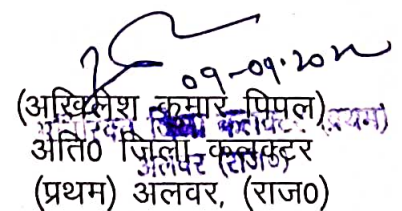 09-09-20
(अखिलेश कुमार पिपल)
अति0 जिला कलक्टर
(प्रथम) अलवर, (राज0)